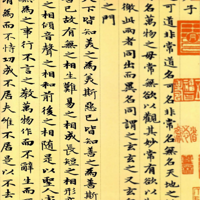 子
可道非常道可名非常名無名天地之
名萬物之母常無欲以觀其妙常有欲以
此兩者同出而異名同謂之玄玄之又玄
之門
皆知美之為美斯惡已皆知善之為善斯
故有無之相生難易之相成長短之相形
之相傾音聲之相和前後之相隨是以聖
為之事行不言之教萬物作而不辭生而
為而不恃功成不居夫惟不居是以不去